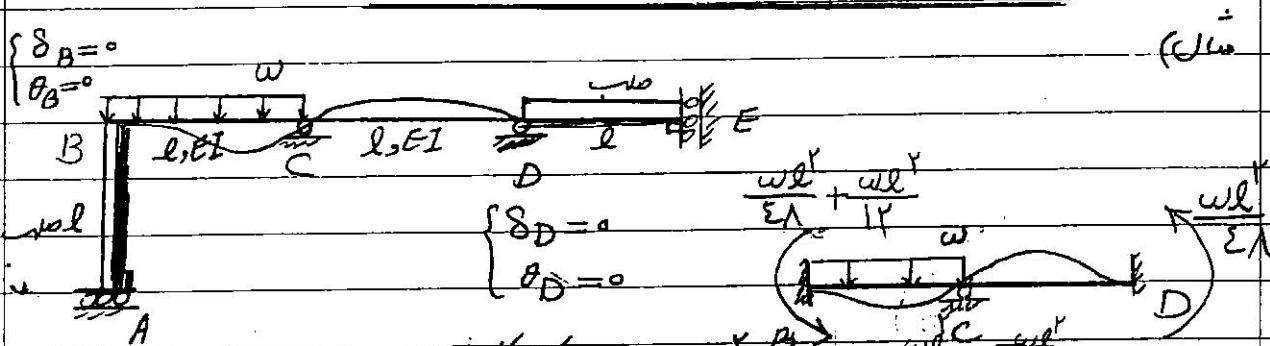 مثال)
δ_B = 0
θ_B = 0
ω
صلب
B
l, EI
C
l, EI
D
l
E
صلب l
A
δ_D = 0
θ_D = 0
ωl^۲/٤۸ + ωl^۲/۱۲
ω
ωl^۲/٤۸
C
D